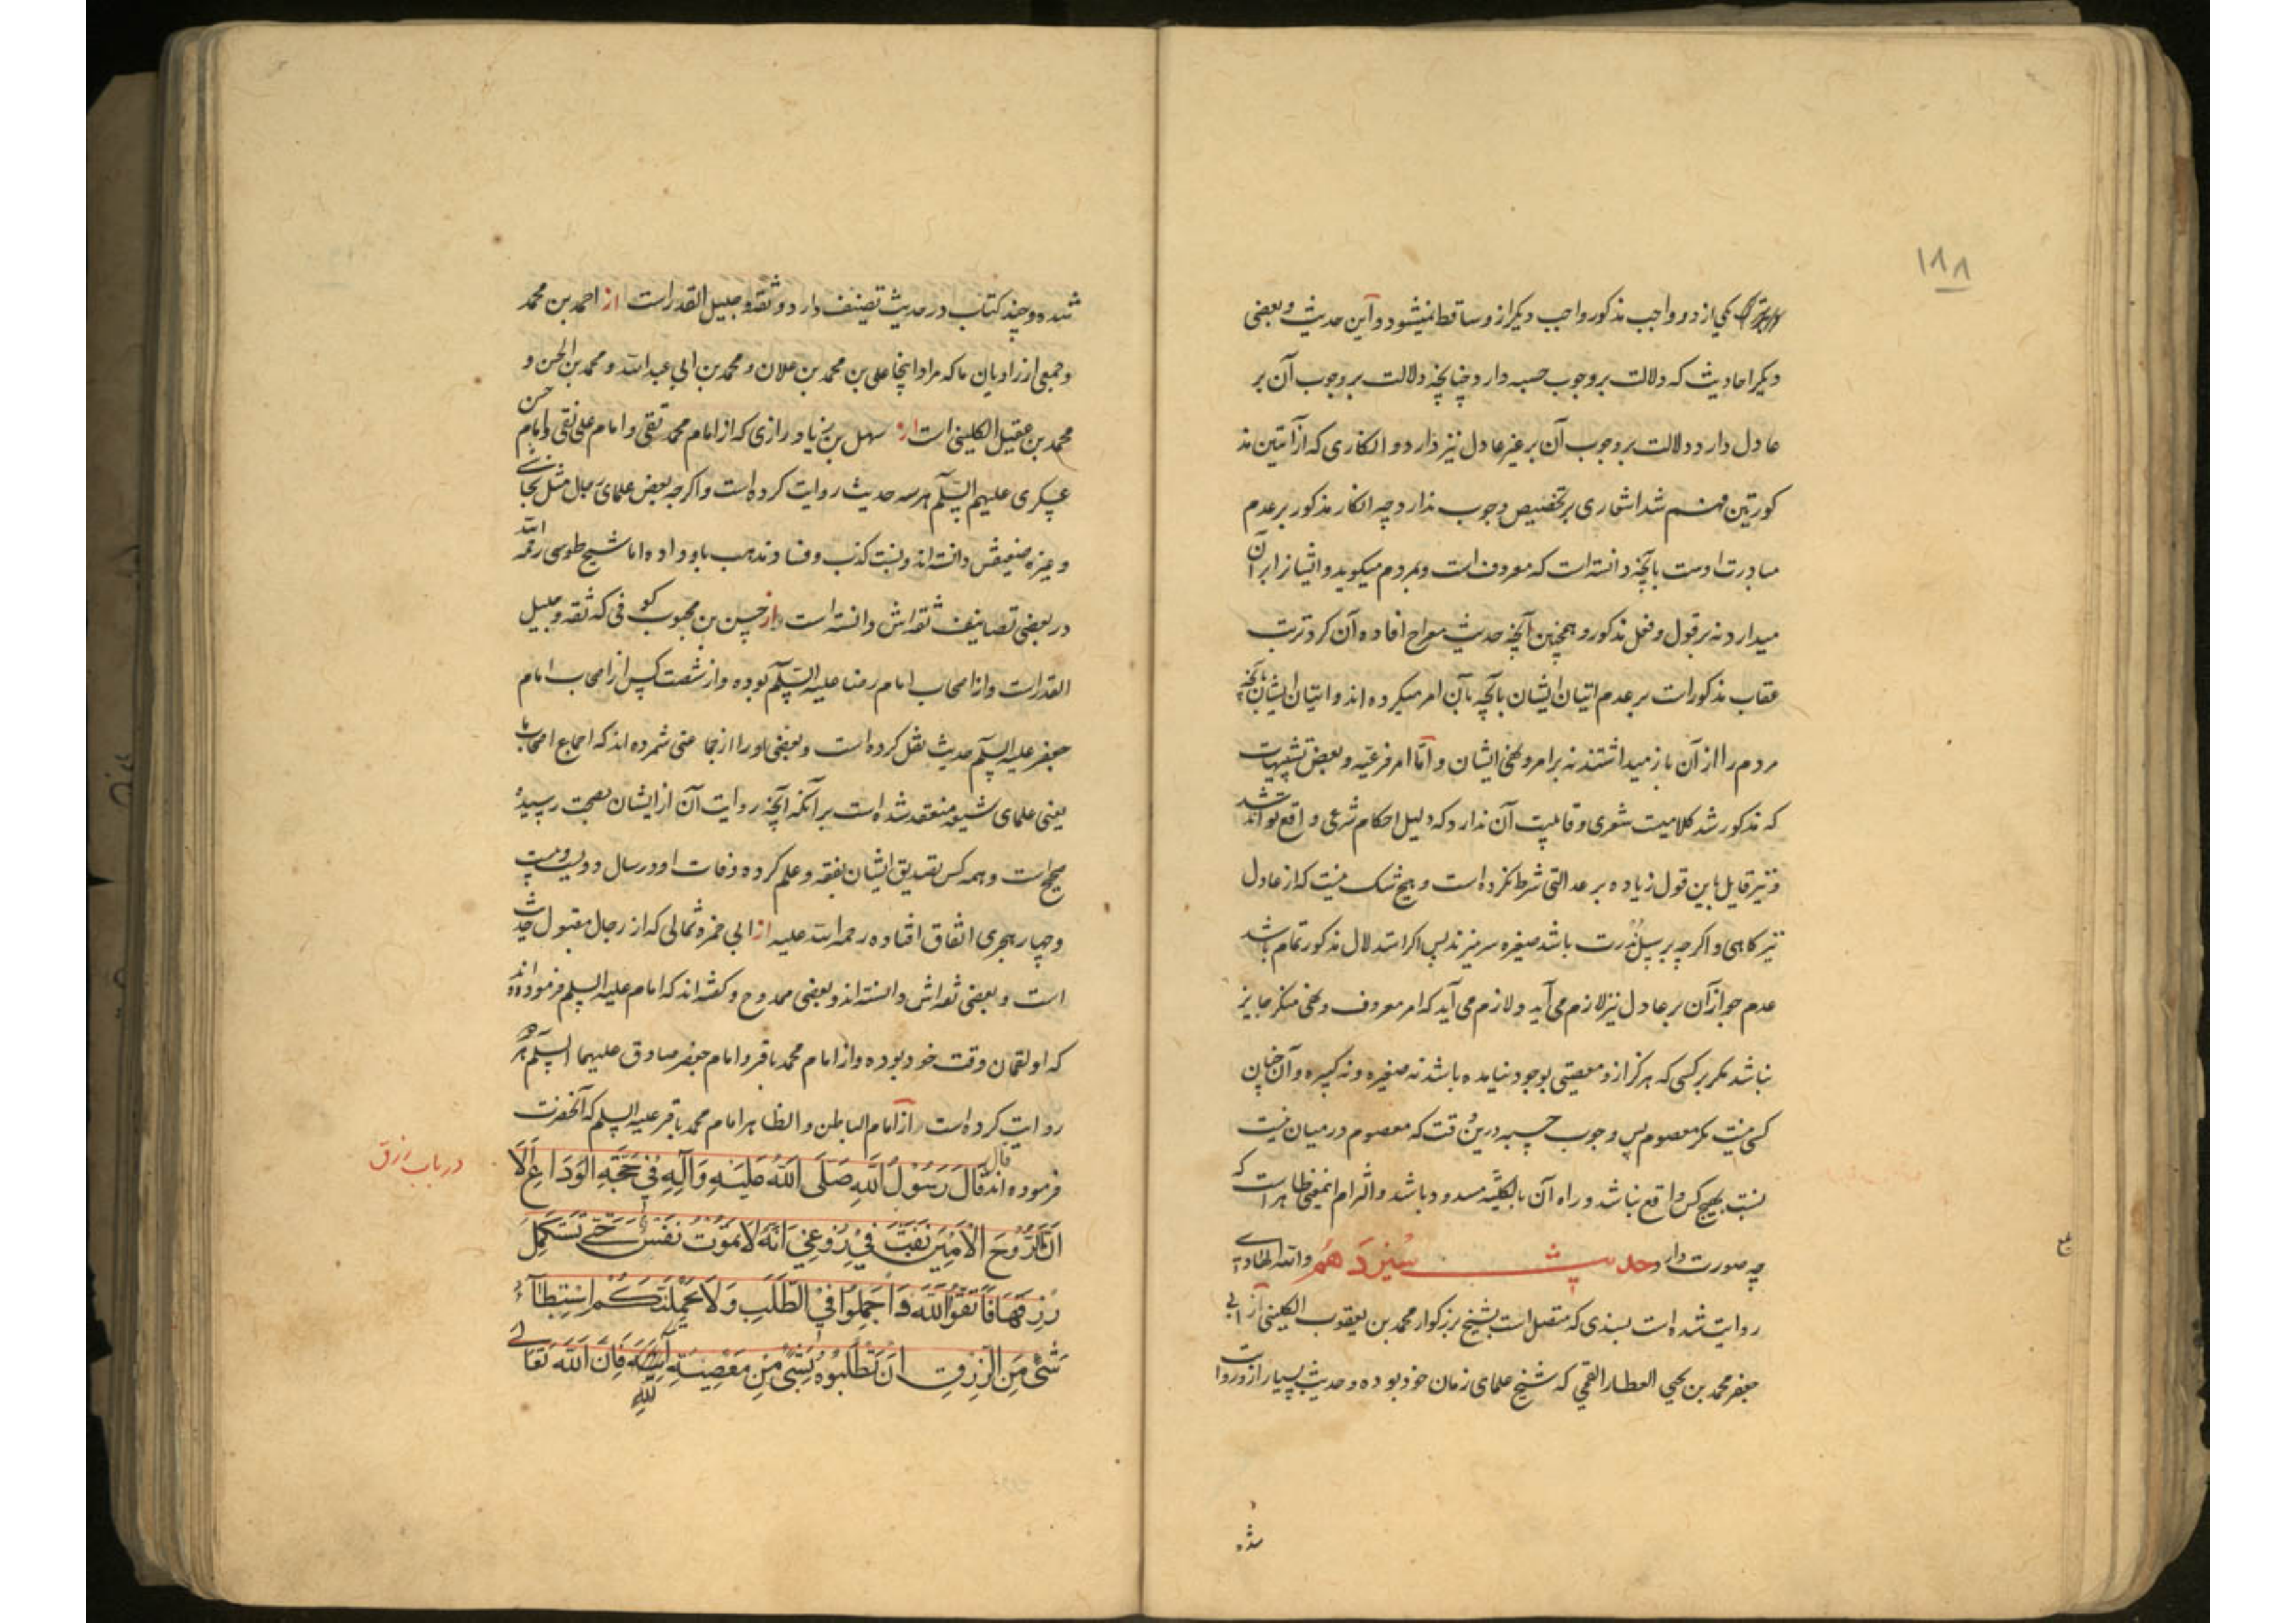 ۱۸۸
بترک یکی از دو واجب مذکور واجب دیگر از و ساقط نمیشود و این حدیث و بعضی
دیگر احادیث که دلالت بر وجوب حسبه دارد چنانچه دلالت بر وجوب آن بر
عادل دارد دلالت بر وجوب آن بر غیر عادل نیز دارد و انکاری که از آیتین مذ
کورتین فهم شد اشعاری بر تخصیص وجوب ندارد چه انکار مذکور بر عدم
مبادرت اوست بآنچه دانسته است که معروفست و بمردم میگوید و ایشانرا بر آن
میدارد نه بر قول و فعل مذکور و همچنین آنچه حدیث معراج افاده آن کرد ترتب
عقاب مذکور است بر عدم اتیان ایشان بآنچه بآن امر میکرده اند و اتیان ایشان بآنچه
مردم را از آن باز میداشتند نه بر امر و نهی ایشان و اما امر فرعیه و بعض تشبیهات
که مذکور شد کلامیست شعری و قابلیت آن ندارد که دلیل احکام شرعی واقع تواند شد
و نیز قایل باین قول زیاده بر عدالتی شرط نکرده است و هیچ شک نیست که از عادل
نیز گاهی و اگرچه بر سبیل ندرت باشد صغیره سر میزند پس اگر استدلال مذکور تمام باشد
عدم جواز آن بر عادل نیز لازم می آید و لازم می آید که امر معروف و نهی منکر جایز
نباشد مگر بر کسی که هرگز از و معصیتی بوجود نیامده باشد نه صغیره و نه کبیره و آن چنان
کسی نیست مگر معصوم پس وجوب حسبه درین وقت که معصوم در میان نیست
نسبت بهیچ کس واقع نباشد و راه آن بالکلیه مسدود باشد و التزام اینمعنی ظاهر است که
چه صورت دارد حدیث سیزدهم والله الهادی
روایت شده است بسندی که متصل است بشیخ بزرگوار محمد بن یعقوب الکلینی از ابی
جعفر محمد بن یحیی العطار القمی که شیخ علمای زمان خود بوده و حدیث بسیار از و روایت
شده
شده و چند کتاب در حدیث تصنیف دارد و ثقه و جلیل القدر است از احمد بن محمد
و جمعی از راویان ما که مراد اینجا علی بن محمد بن علان و محمد بن ابی عبد الله و محمد بن الحسن و
محمد بن عقیل الکلینی است از سهل بن زیاد رازی که از امام محمد تقی و امام علی نقی و امام حسن
عسکری علیهم السلم هر سه حدیث روایت کرده است و اگرچه بعض علمای رجال مثل نجاشی
و غیره ضعیفش دانسته اند و نسبت کذب و فساد مذهب باو داده اما شیخ طوسی رحمه الله
در بعضی تصانیف ثقه اش دانسته است از حسن بن محبوب کوفی که ثقه و جلیل
القدر است و از اصحاب امام رضا علیه السلم بوده و از شصت کس از اصحاب امام
جعفر علیه السلم حدیث نقل کرده است و بعضی او را از جماعتی شمرده اند که اجماع اصحاب ما
یعنی علمای شیعه منعقد شده است بر آنکه آنچه روایت آن از ایشان بصحت رسیده
صحیح است و همه کس تصدیق ایشان بفقه و علم کرده وفات او در سال دویست و بیست
و چهار هجری اتفاق افتاده رحمه الله علیه از ابی حمزه ثمالی که از رجال مقبول حدیث
است و بعضی ثقه اش دانسته اند و بعضی ممدوح و گفته اند که امام علیه السلم فرموده اند
که او لقمان وقت خود بوده و از امام محمد باقر و امام جعفر صادق علیهما السلم هر دو
روایت کرده است از امام الباطن و الظاهر امام محمد باقر علیه السلم که آنحضرت
در باب رزق
فرموده اند قال قَالَ رَسُولُ اللهِ صَلَّى اللهُ عَلَيْهِ وَآلِهِ فِي حَجَّةِ الوَدَاعِ أَلَا
اِنَّ الرُّوحَ الْاَمِينَ نَفَثَ فِي رُوعِي اَنَّهُ لَا تَمُوتُ نَفْسٌ حَتَّى تَسْتَكْمِلَ
رِزْقَهَا فَاتَّقُوا اللهَ وَاَجْمِلُوا فِي الطَّلَبِ وَلَا يَحْمِلَنَّكُمْ اسْتِبْطَاءُ
شَيْءٍ مِنَ الرِّزْقِ اَنْ تَطْلُبُوهُ بِشَيْءٍ مِنْ مَعْصِيَةِ اللهِ فَاِنَّ اللهَ تَعَالَى